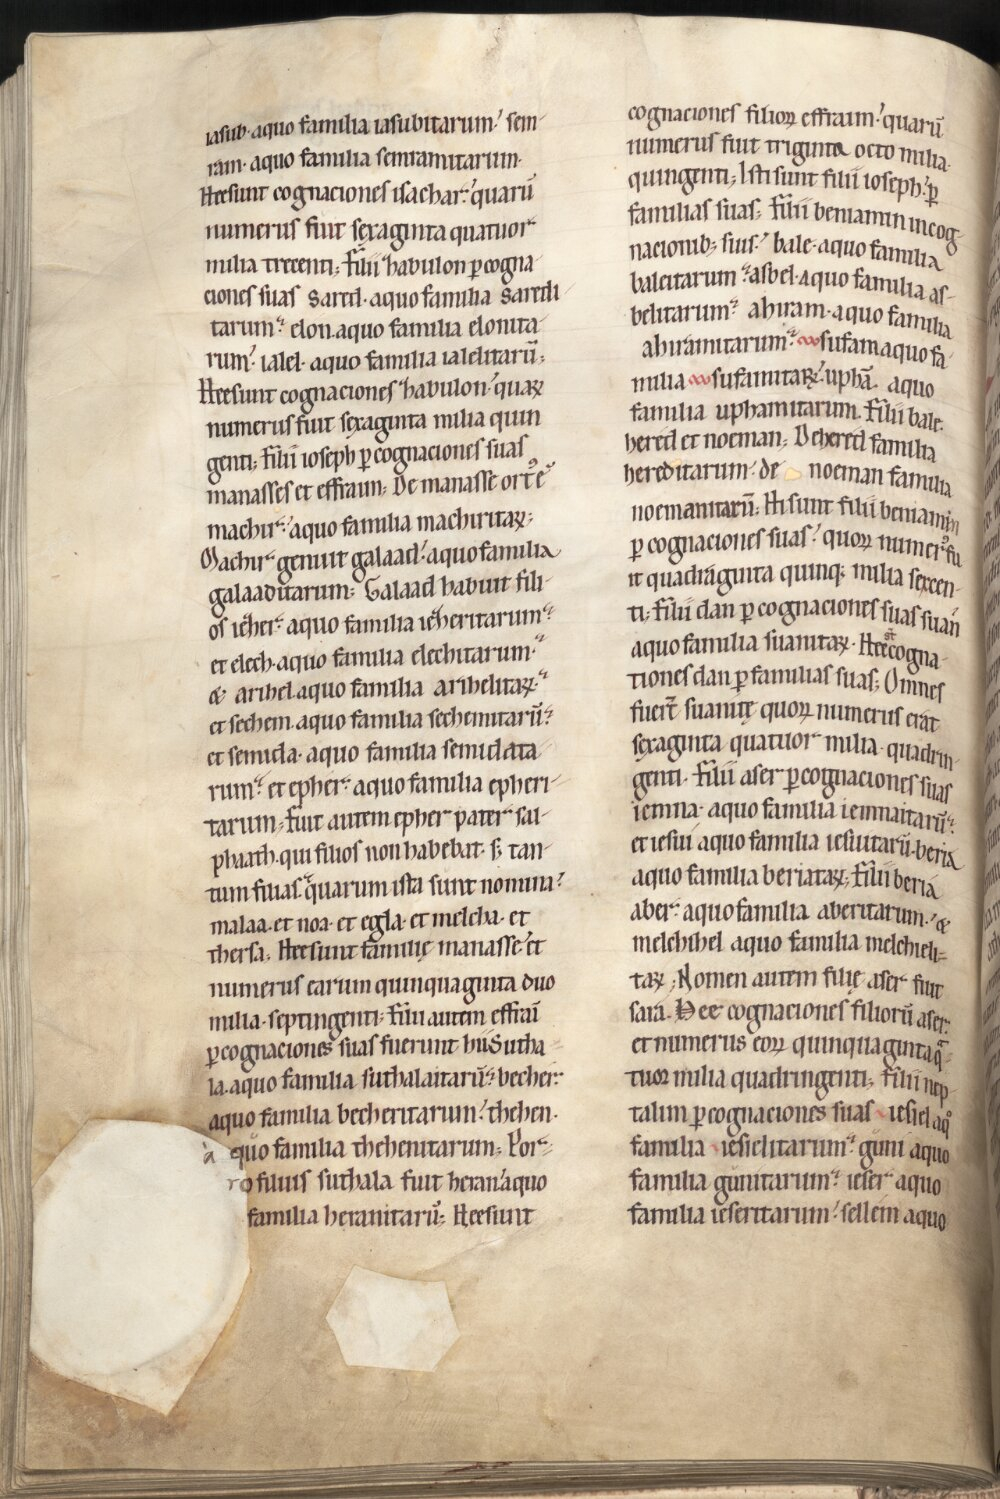 iasub· aquo familia iasubitarum· sem-
ram· aquo familia semramitarum·
Hęc sunt cognaciones isachar· quarū
numerus fuit sexaginta quatuor
milia trecenti; Filii habulon ꝑ cogna-
ciones suas Sared· aquo familia Saredi-
tarum· elon· aquo familia elonita-
rum· ialel· aquo familia ialelitarū;
Hęc sunt cognaciones habulon· quaꝝ
numerus fuit sexaginta milia quin
genti; Filii ioseph ꝑ cognaciones suas
manasses et effraim; De manasse
machir· aquo familia machiritaꝝ;
Machir genuit galaad· aquo familia
galaaditarum; Galaad habuit fili-
os aquo familia
et elech· aquo familia elechitarum·
& arihel aquo familia arihelitaꝝ·
et sechem aquo familia sechemitarū·
et semida· aquo familia semidata-
rum· et epher· aquo familia epheri-
tarum; Fuit autem epher pater sal-
phaath· qui filios non habebat· s; tan-
tum filias quarum ista sunt nomina·
malaa· et noa· et egla· et melcha· et
thersa; Hęc sunt familię manasse· et
numerus earum quinquaginta duo
milia· septingenti; Filii autem effraī
ꝑ cognaciones suas fuerunt hii· Sutha-
la· aquo familia suthalaitarū· becher·
aquo familia becheritarum· thehen·
à quo familia thehenitarum; Por-
ro filius suthala fuit heran· aquo
familia heranitarū; Hęc sunt
cognaciones filioꝝ effraim· quarū
numerus fuit triginta octo milia·
quingenti; Isti sunt filii ioseph· ꝑ
familias suas; Filii beniamin in cog-
nacionib; suis· bale· aquo familia
baleitarum· asbel· aquo familia as-
belitarum· ahiram· aquo familia
ahiramitarum· sufam aquo fa-
milia sufamitaꝝ· uphā· aquo
familia uphamitarum· Filii bale·
hered et noeman; De hered familia
hereditarum· de noeman familia
noemanitarū; Hi sunt filii beniamin
ꝑ cognaciones suas· quoꝝ numerꝰ fu-
it quadraginta quinq; milia sexcen-
ti; Filii dan ꝑ cognaciones suas suan
aquo familia suanitaꝝ· Hęc cogna-
tiones dan ꝑ familias suas; Omnes
fuer̄t suanitę quoꝝ numerus erat
sexaginta quatuor milia· quadrin-
genti· Filii aser ꝑ cognaciones suas
iemna· aquo familia iemnaitarū·
et iesui aquo familia iesuitarū· beria
aquo familia beriataꝝ; Filii beria
aber· aquo familia aberitarum· &
melchihel aquo familia melchieli-
taꝝ; Nomen autem filię aser fuit
sara· Hęc cognaciones filiorū aser·
et numerus eoꝝ quinquaginta q̄-
tuor milia quadringenti; Filii nep-
talim ꝑ cognaciones suas iesiel aqͦ
familia iesielitarum· guni aquo
familia gunitarum· ieser aquo
familia ieseritarum· sellem aquo